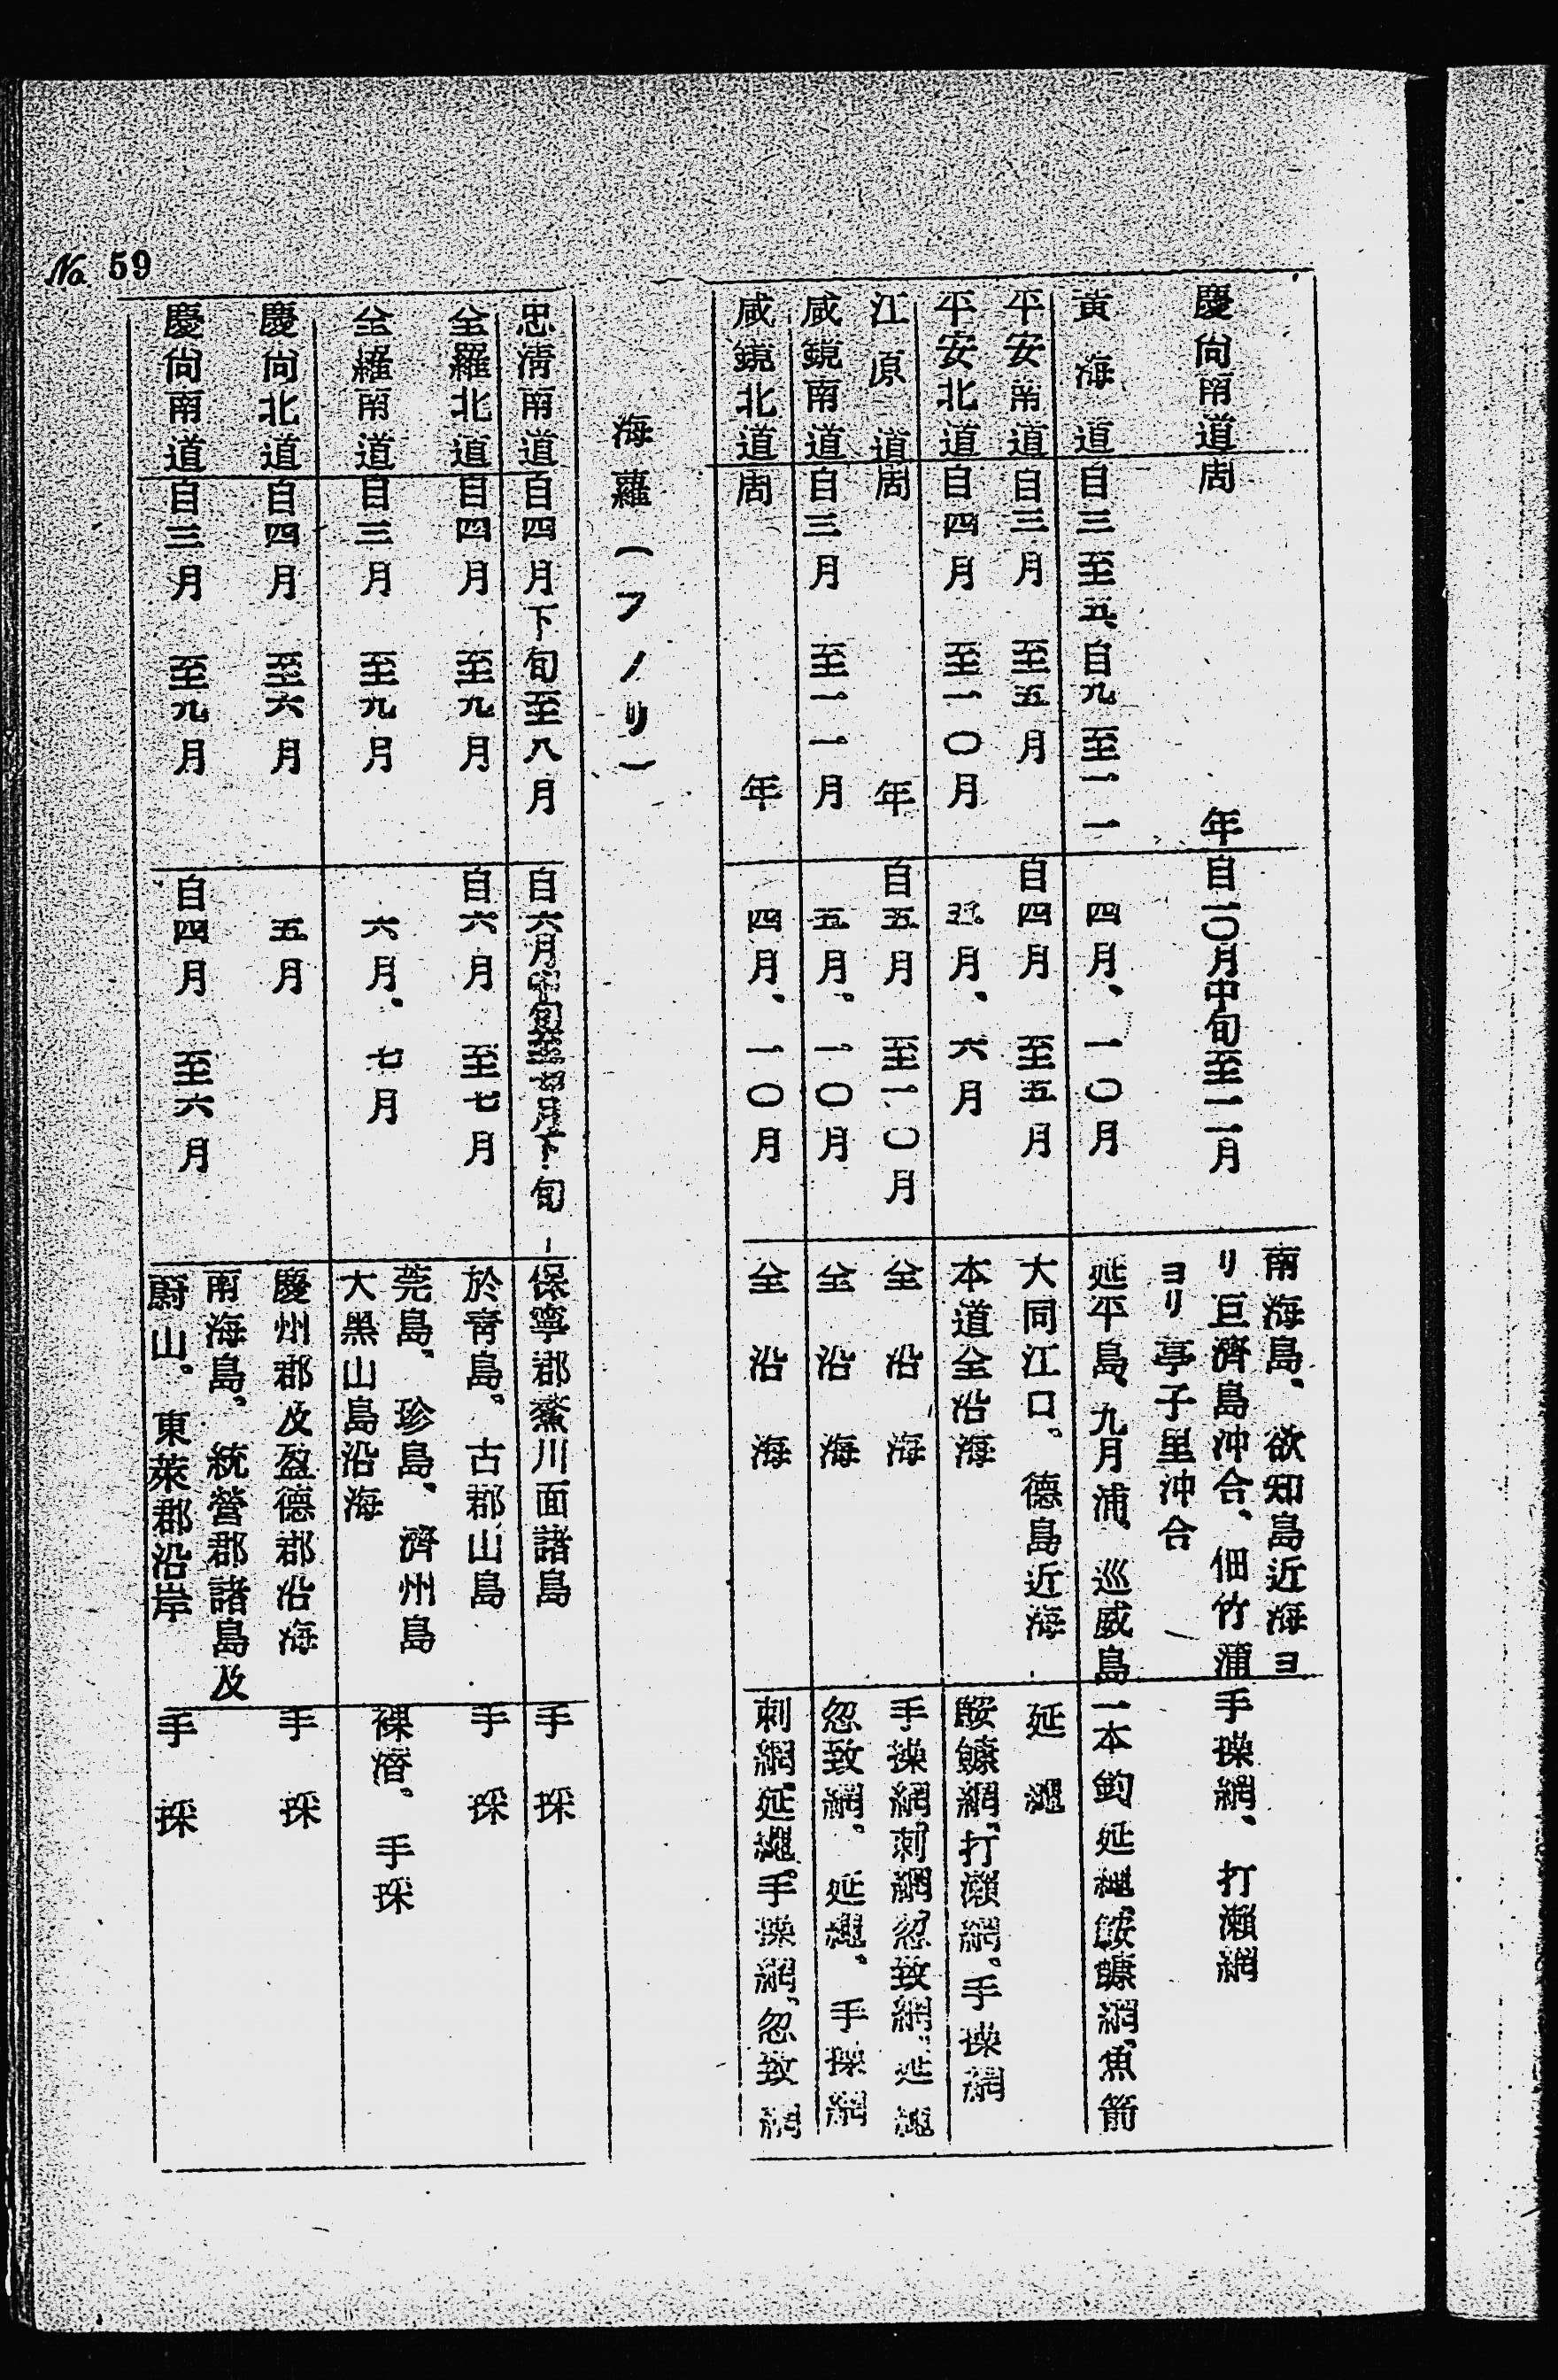 慶尙南道 周年 自一〇月中旬至一二月 南海島、欲知島近海ヨ
リ巨濟島沖合、佃竹蒲
ヨリ亭子里沖合 手操網、打瀨網
黃海道 自三至五、自九至一一 四月、一〇月 延平島、九月浦、巡威島 一本釣延繩、鮟鱇網、魚箭
平安南道 自三月至五月 自四月至五月 大同江口、德島近海 延繩
平安北道 自四月至一〇月 五月、六月 本道全沿海 鮟鱇網、打瀨網、手操網
江原道 周年 自五月至一〇月 全沿海 手操網、刺網、忽致網、延繩
咸鏡南道 自三月至一一月 五月、一〇月 全沿海 忽致網、延繩、手操網
咸鏡北道 周年 四月、一〇月 全沿海 刺網、延繩、手操網、忽致網
海蘿(フノリ)
忠淸南道 自四月下旬至八月 自六月中旬至七月下旬 保寧郡鰲川面諸島 手採
全羅北道 自四月至九月 自六月至七月 於靑島、古郡山島 手採
全羅南道 自三月至九月 六月、七月 莞島、珍島、濟州島
大黑山島沿海 裸潛、手採
慶尙北道 自四月至六月 五月 慶州郡及盈德郡沿海 手採
慶尙南道 自三月至九月 自四月至六月 南海島、統營郡諸島及
蔚山、東萊郡沿岸 手採
No. 59